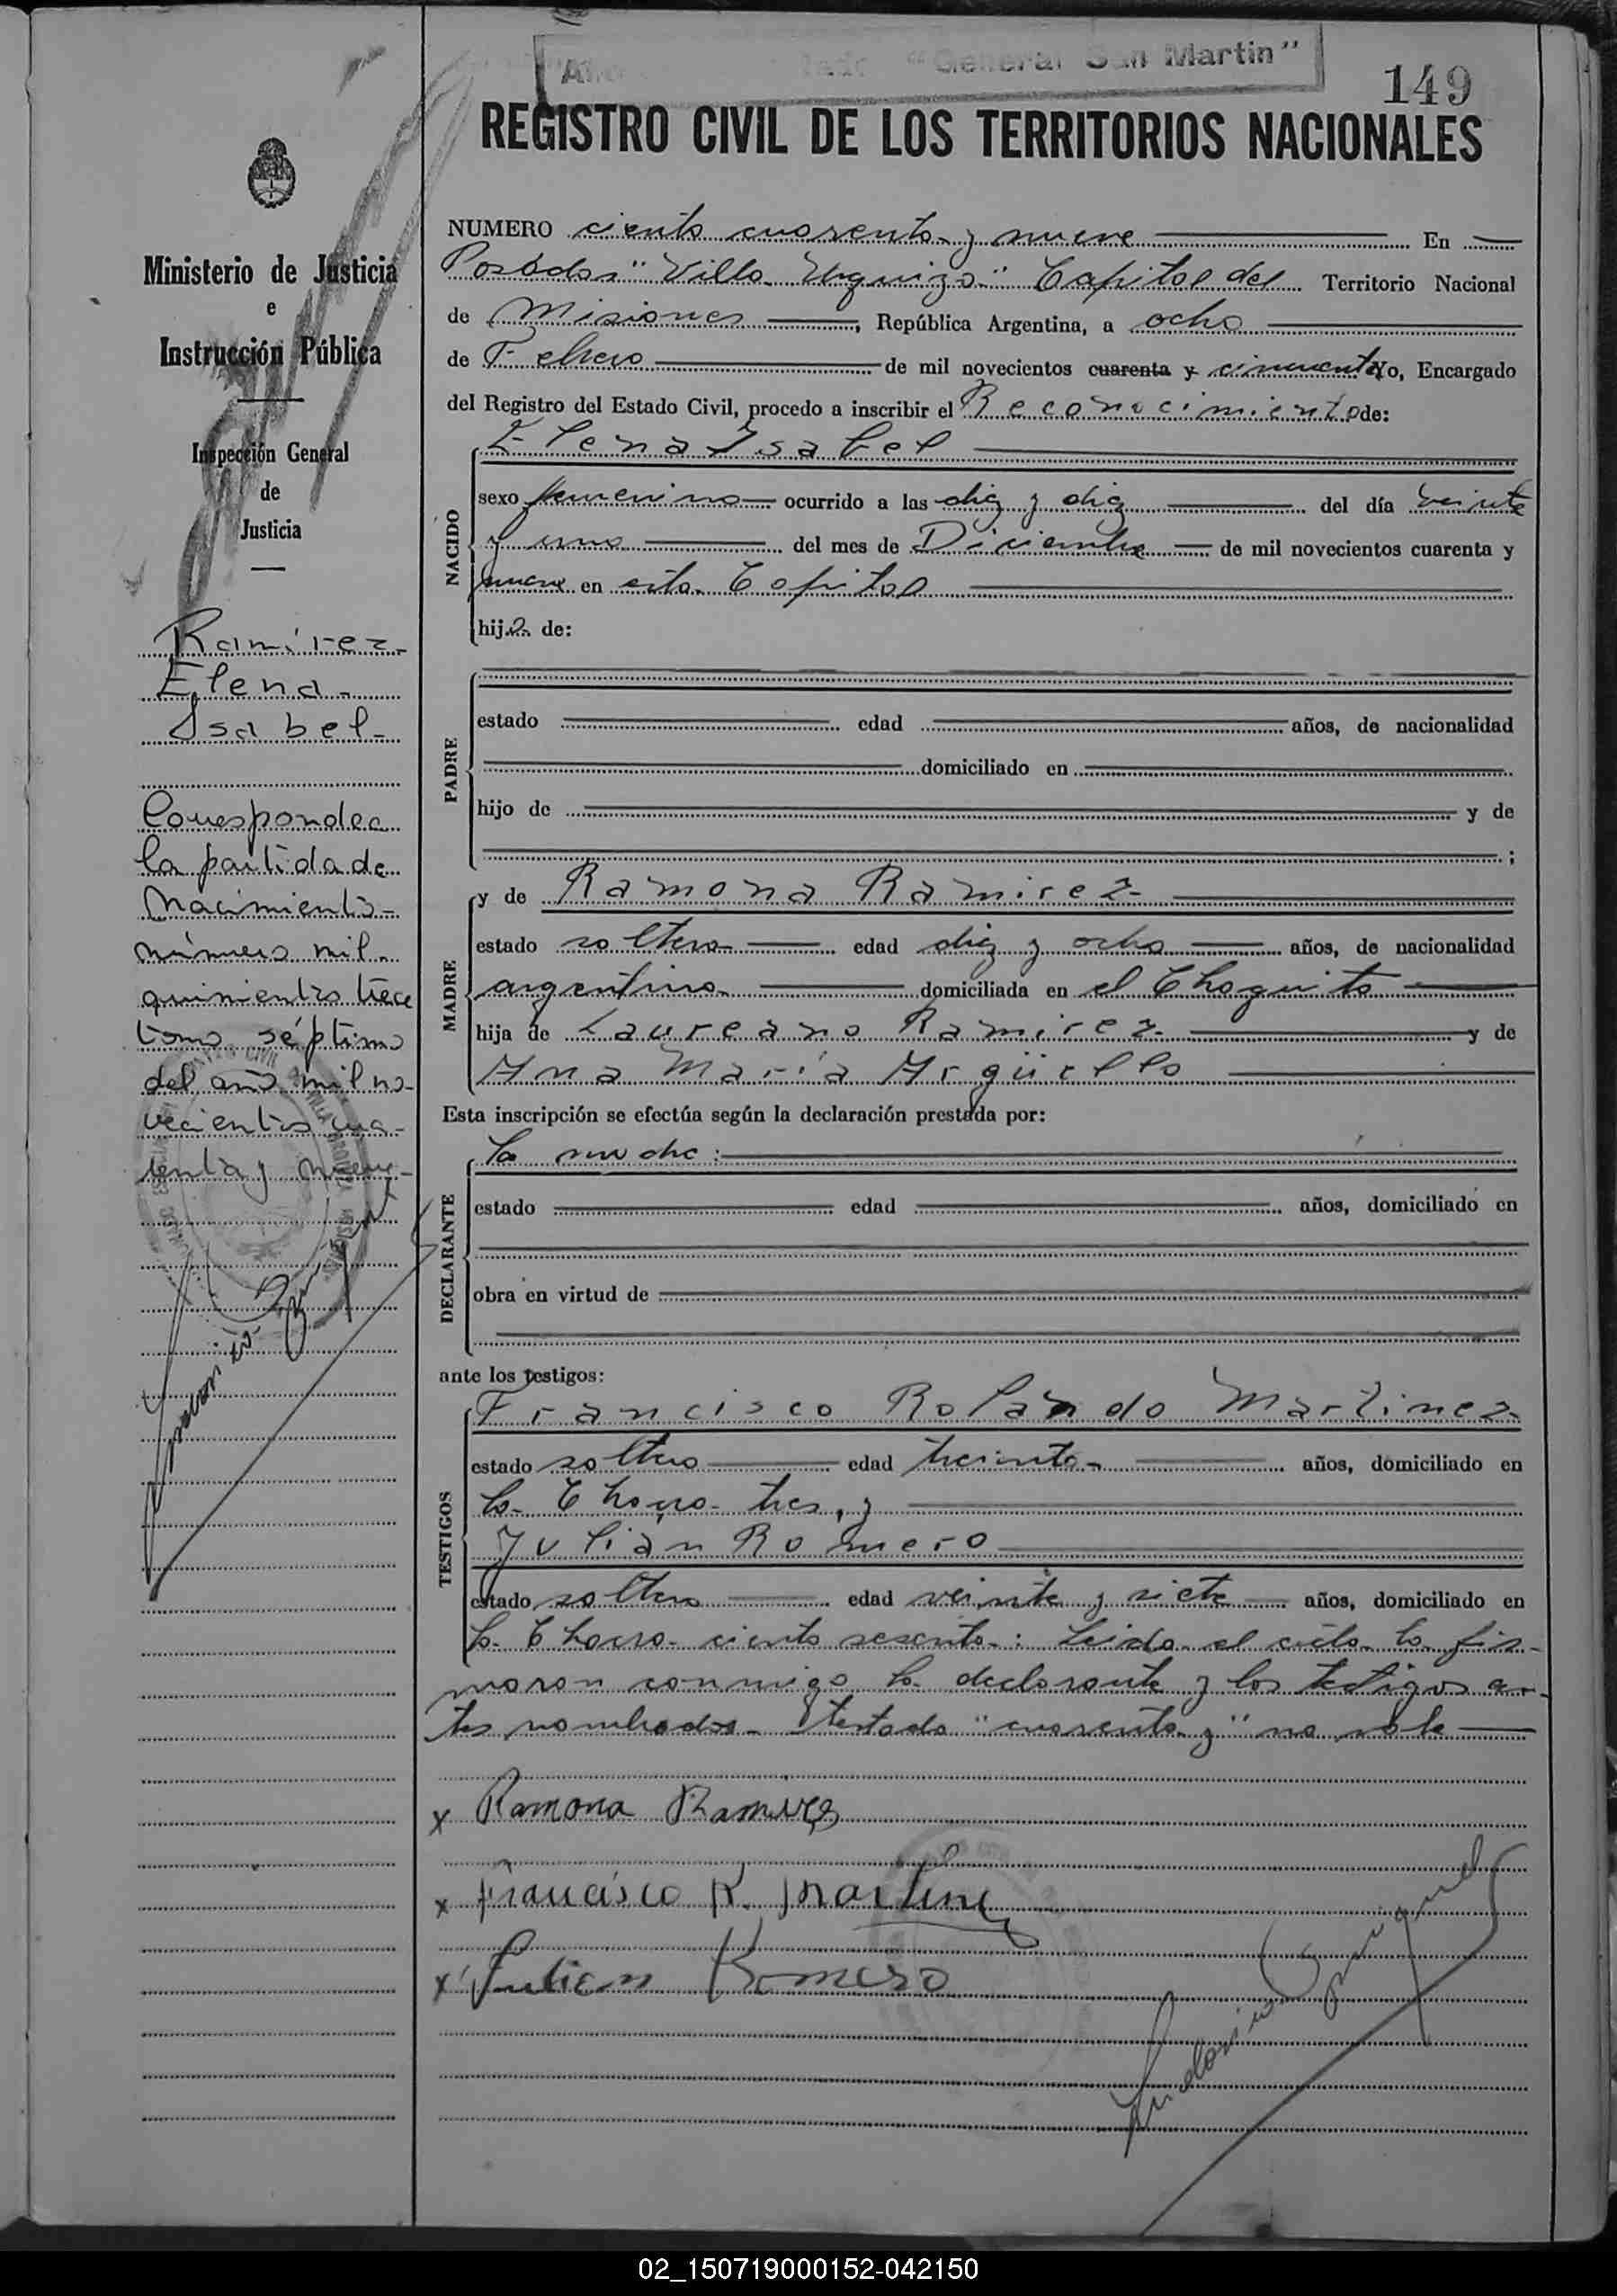 "Año "General San Martin"
149
REGISTRO CIVIL DE LOS TERRITORIOS NACIONALES
Ministerio de Justicia
e
Instrucción Pública
Inspección General
de
Justicia
Ramírez
Elena
Isabel
Corresponde a
la partida de
Nacimiento
número mil
quinientos trece
tomo séptimo
del año mil no-
vecientos cua-
renta y nueve
NUMERO ciento cuarenta y nueve En
Posadas "Villa Urquiza" Capital del Territorio Nacional
de Misiones, República Argentina, a ocho
de Febrero de mil novecientos cuarenta y cincuenta Yo, Encargado
del Registro del Estado Civil, procedo a inscribir el Reconocimiento de:
NACIDO
Elena Isabel
sexo femenino ocurrido a las diez y diez del día veinte
y uno del mes de Diciembre de mil novecientos cuarenta y
nueve en esta Capital
hija de:
PADRE
estado edad años, de nacionalidad
domiciliado en
hijo de y de
;
MADRE
y de Ramona Ramirez
estado soltera edad diez y ocho años, de nacionalidad
argentina domiciliada en el Chaquito
hija de Laureano Ramirez y de
Ana María Argüello
Esta inscripción se efectúa según la declaración prestada por:
DECLARANTE
la madre:
estado edad años, domiciliado en
obra en virtud de
ante los testigos:
TESTIGOS
Francisco Rolando Martinez
estado soltero edad treinta años, domiciliado en
la Chacra tres, y
Julián Romero
estado soltero edad veinte y siete años, domiciliado en
la Chacra ciento sesenta: Leída el acta la fir-
maron conmigo la declarante y los testigos an-
tes nombrados. Testado "cuarenta y" no vale
x Ramona Ramirez
x Francisco R. Martinez
x Julian Romero
02_150719000152-042150